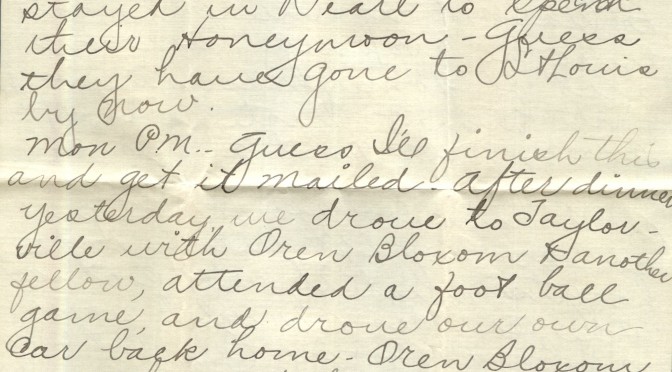 stayed in Pearl to spend
their Honeymoon - Guess
they have gone to St Louis
by now.
Mon PM.- Guess I'll finish this
and get it mailed - After dinner
yesterday, we drove to Taylor-
ville with Oren Bloxom & another
fellow, attended a foot ball
game, and drove our own
car back home - Oren Bloxom